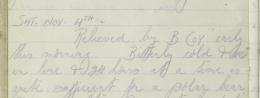 SAT. NOV. 4TH -
Relieved by B Coy early
this morning Bitterly cold &
in line & 24 hours at a time is
quite sufficient for a polar bear